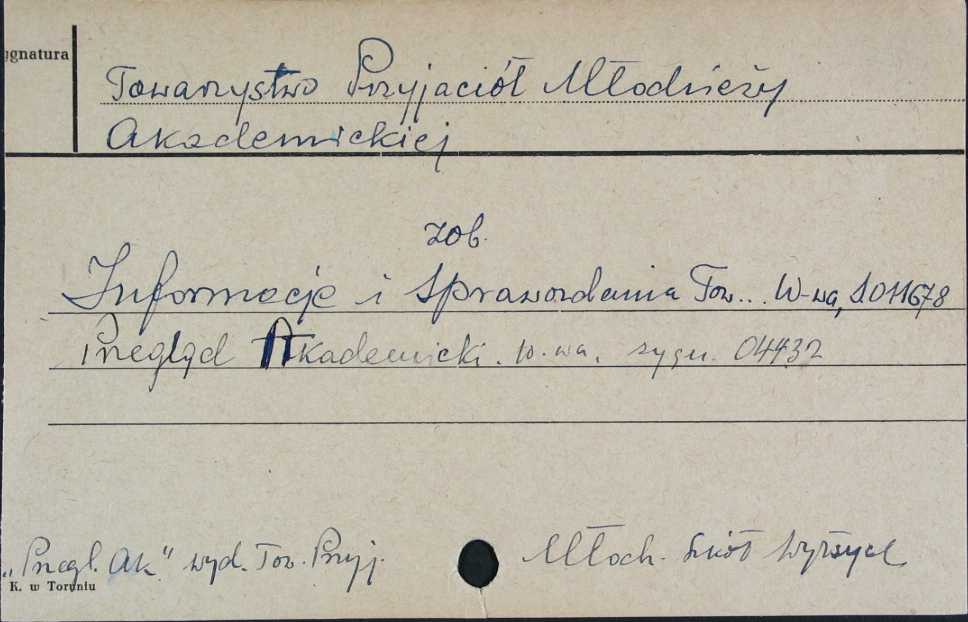 ygnatura
Towarzystwo Przyjaciół Młodzieży
Akademickiej
zob.
Informacje i Sprawozdania Tow... W-wa, 1011678
Przegląd Akademicki. W-wa. sygn. 04432
"Przegl. Ak." wyd. Tow. Przyj. Młodz. Szkół Wyższych
K. w Toruniu